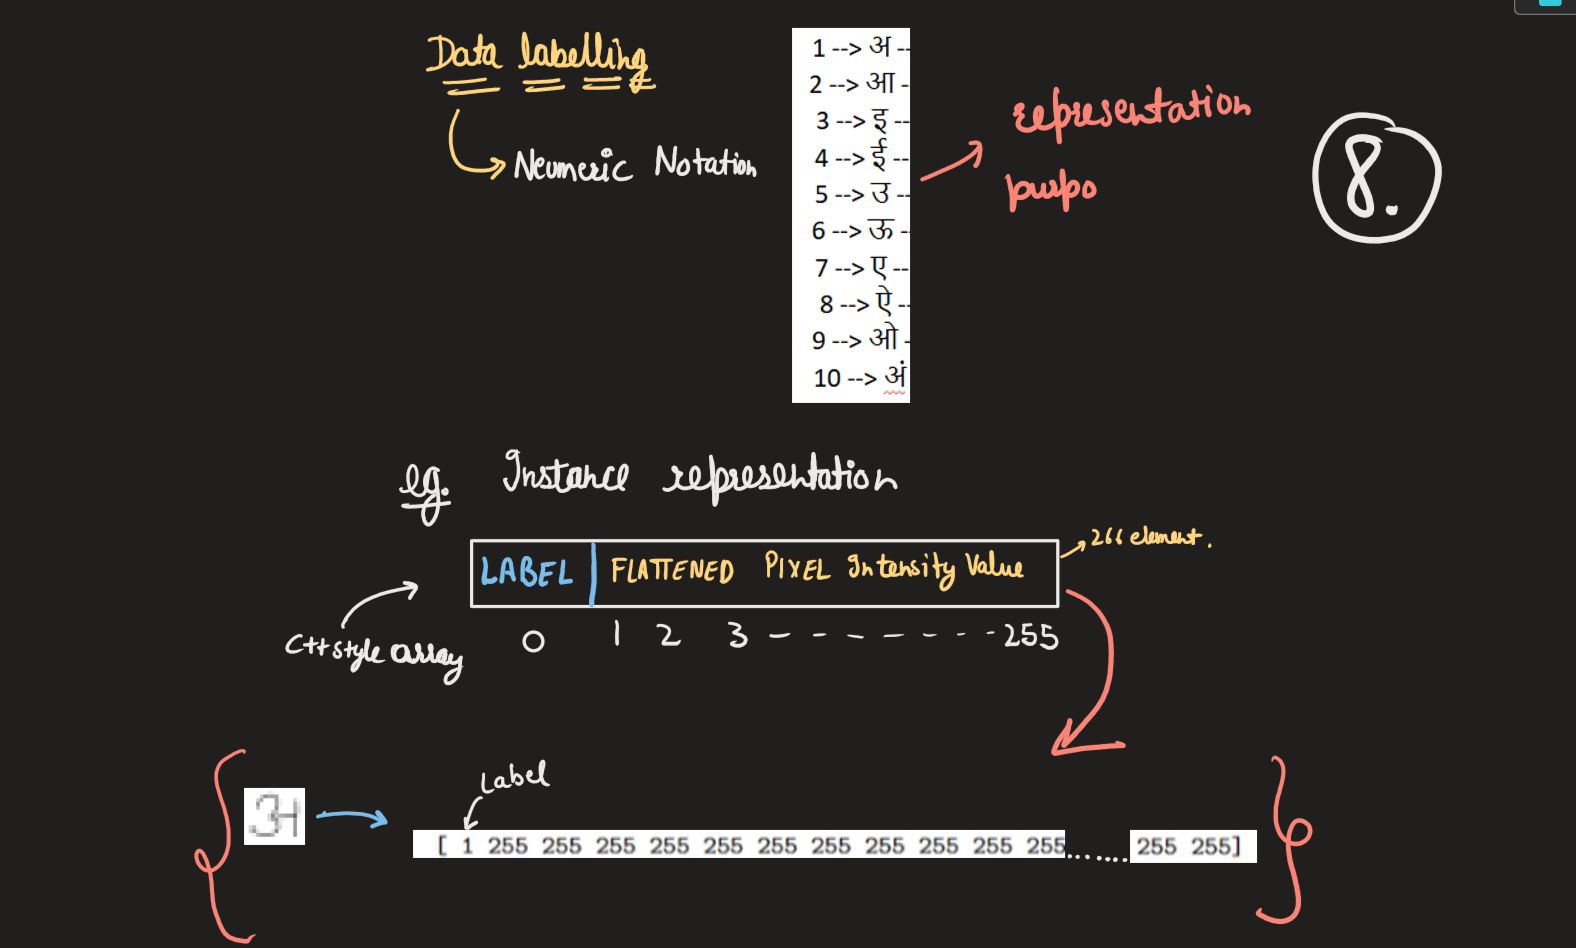 Data labelling
Neumeric Notation
1 --> अ --
2 --> आ -
3 --> इ --
4 --> ई --
5 --> उ --
6 --> ऊ -
7 --> ए --
8 --> ऐ --
9 --> ओ -
10 --> अं
representation
purpo
8.
eg. Instance representation
LABEL | FLATTENED PIXEL Intensity Value
266 element.
C++ style array
0 1 2 3 - - - - - - - - 255
Label
अ
[ 1 255 255 255 255 255 255 255 255 255 255 255 ....... 255 255]